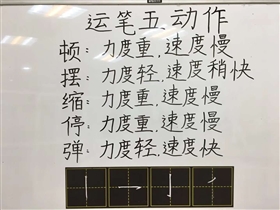 运笔五动作
顿：力度重，速度慢
摆：力度轻，速度稍快
缩：力度重，速度慢
停：力度重，速度慢
弹：力度轻，速度快